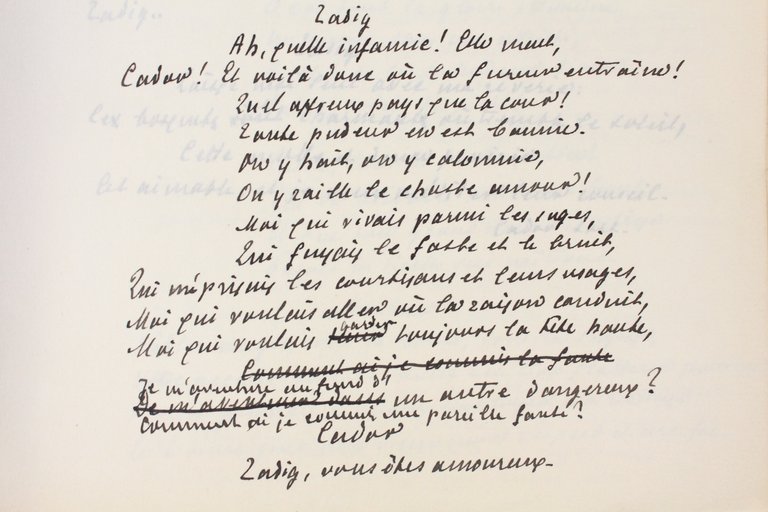 Zadig
Ah, quelle infamie! Elle ment,
Cador! Et voilà donc où la fureur entraîne!
Quel affreux pays que la cour!
Toute pudeur en est bannie.
On y hait, on y calomnie,
On y raille le chaste amour!
Moi qui vivais parmi les sages,
Qui fuyais le faste et le bruit,
Qui méprisais les courtisans et leurs usages,
Moi qui voulais aller où la raison conduit,
Moi qui voulais garder toujours la tête haute,
Comment ai-je commis la faute
Je m'aventure au fond d'
De m'aventurer dans un antre dangereux?
Comment ai-je commis une pareille faute?
Cador
Zadig, vous êtes amoureux.